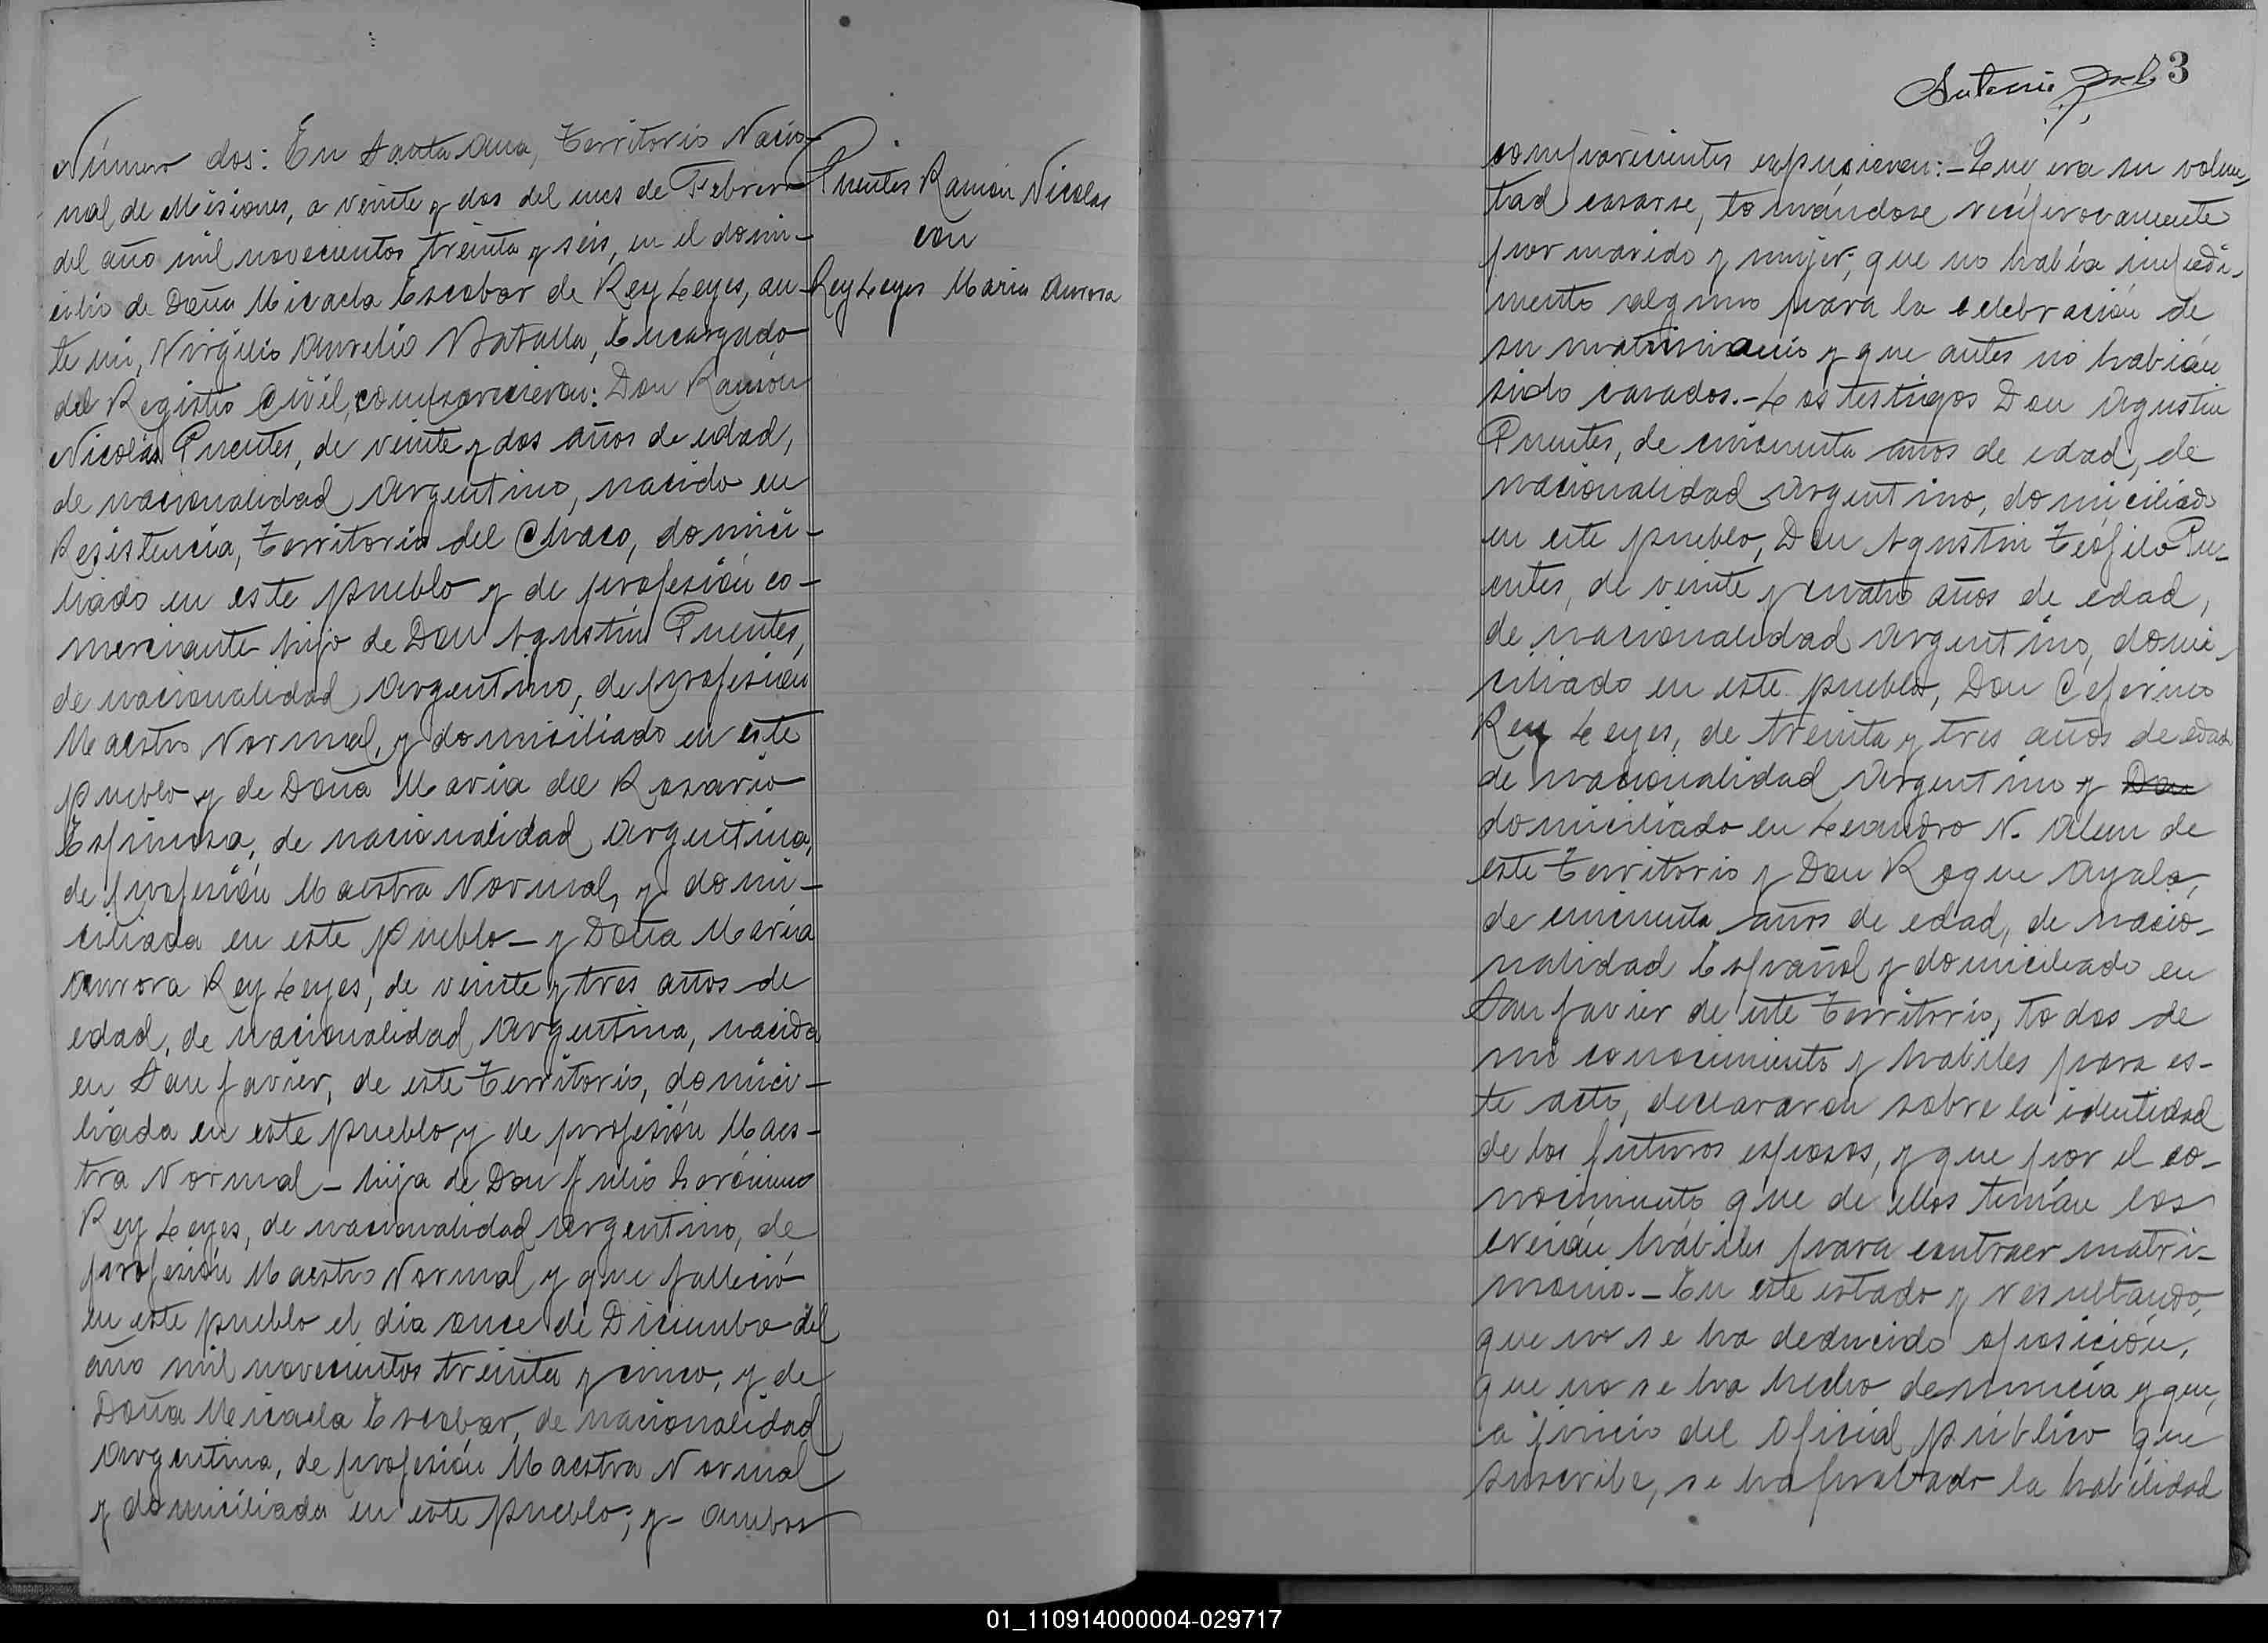 Número dos: En Santa Ana, Territorio Nacio-
nal de Misiones, a veinte y dos del mes de Febrero
del año mil novecientos treinta y seis, en el domi-
cilio de Doña Micaela Escobar de Rey Leyes, an-
te mi, Virgilio Aurelio Batalla, Encargado
del Registro Civil, comparecieron: Don Ramón
Nicolás Puentes, de veinte y dos años de edad,
de nacionalidad Argentino, nacido en
Resistencia, Territorio del Chaco, domici-
liado en este pueblo y de profesión co-
merciante hijo de Don Agustín Puentes,
de nacionalidad Argentino, de profesión
Maestro Normal, y domiciliado en este
pueblo y de Doña Maria del Rosario
Espinosa, de nacionalidad Argentina,
de profesión Maestra Normal, y domi-
ciliada en este pueblo - y Doña Maria
Aurora Rey Leyes, de veinte y tres años de
edad, de nacionalidad Argentina, nacida
en San Javier, de este Territorio, domici-
liada en este pueblo y de profesión Maes-
tra Normal - hija de Don Julio Gerónimo
Rey Leyes, de nacionalidad Argentino, de
profesión Maestro Normal y que falleció
en este pueblo el día once de Diciembre del
año mil novecientos treinta y cinco, y de
Doña Micaela Escobar, de nacionalidad
Argentina, de profesión Maestra Normal
y domiciliada en este pueblo; y - ambos
Puentes Ramón Nicolas
con
Rey Leyes Maria Aurora
Antonio
3
comparecientes expusieron: - Que era su volun-
tad casarse, tomándose recíprocamente
por marido y mujer; que no había impedi-
mento alguno para la celebración de
su matrimonio y que antes no habían
sido casados. - Los testigos Don Agustín
Puentes, de cincuenta años de edad, de
nacionalidad Argentino, domiciliado
en este pueblo, Don Agustin Teófilo Pu-
entes, de veinte y cuatro años de edad,
de nacionalidad Argentino, domi-
ciliado en este pueblo, Don Ceferino
Rey Leyes, de treinta y tres años de edad
de nacionalidad Argentino y Don
domiciliado en Leandro N. Alem de
este Territorio y Don Roque Ayala,
de cincuenta años de edad, de nacio-
nalidad Español y domiciliado en
San Javier de este Territorio, todos de
mi conocimiento y habiles para es-
te acto, declararon sobre la identidad
de los futuros esposos, y que por el co-
nocimiento que de ellos tenían los
creían hábiles para contraer matri-
monio. - En este estado y resultando,
que no se ha deducido oposición,
que no se ha hecho denuncia y que,
a juicio del Oficial público que
suscribe, se ha probado la habilidad
01_110914000004-029717